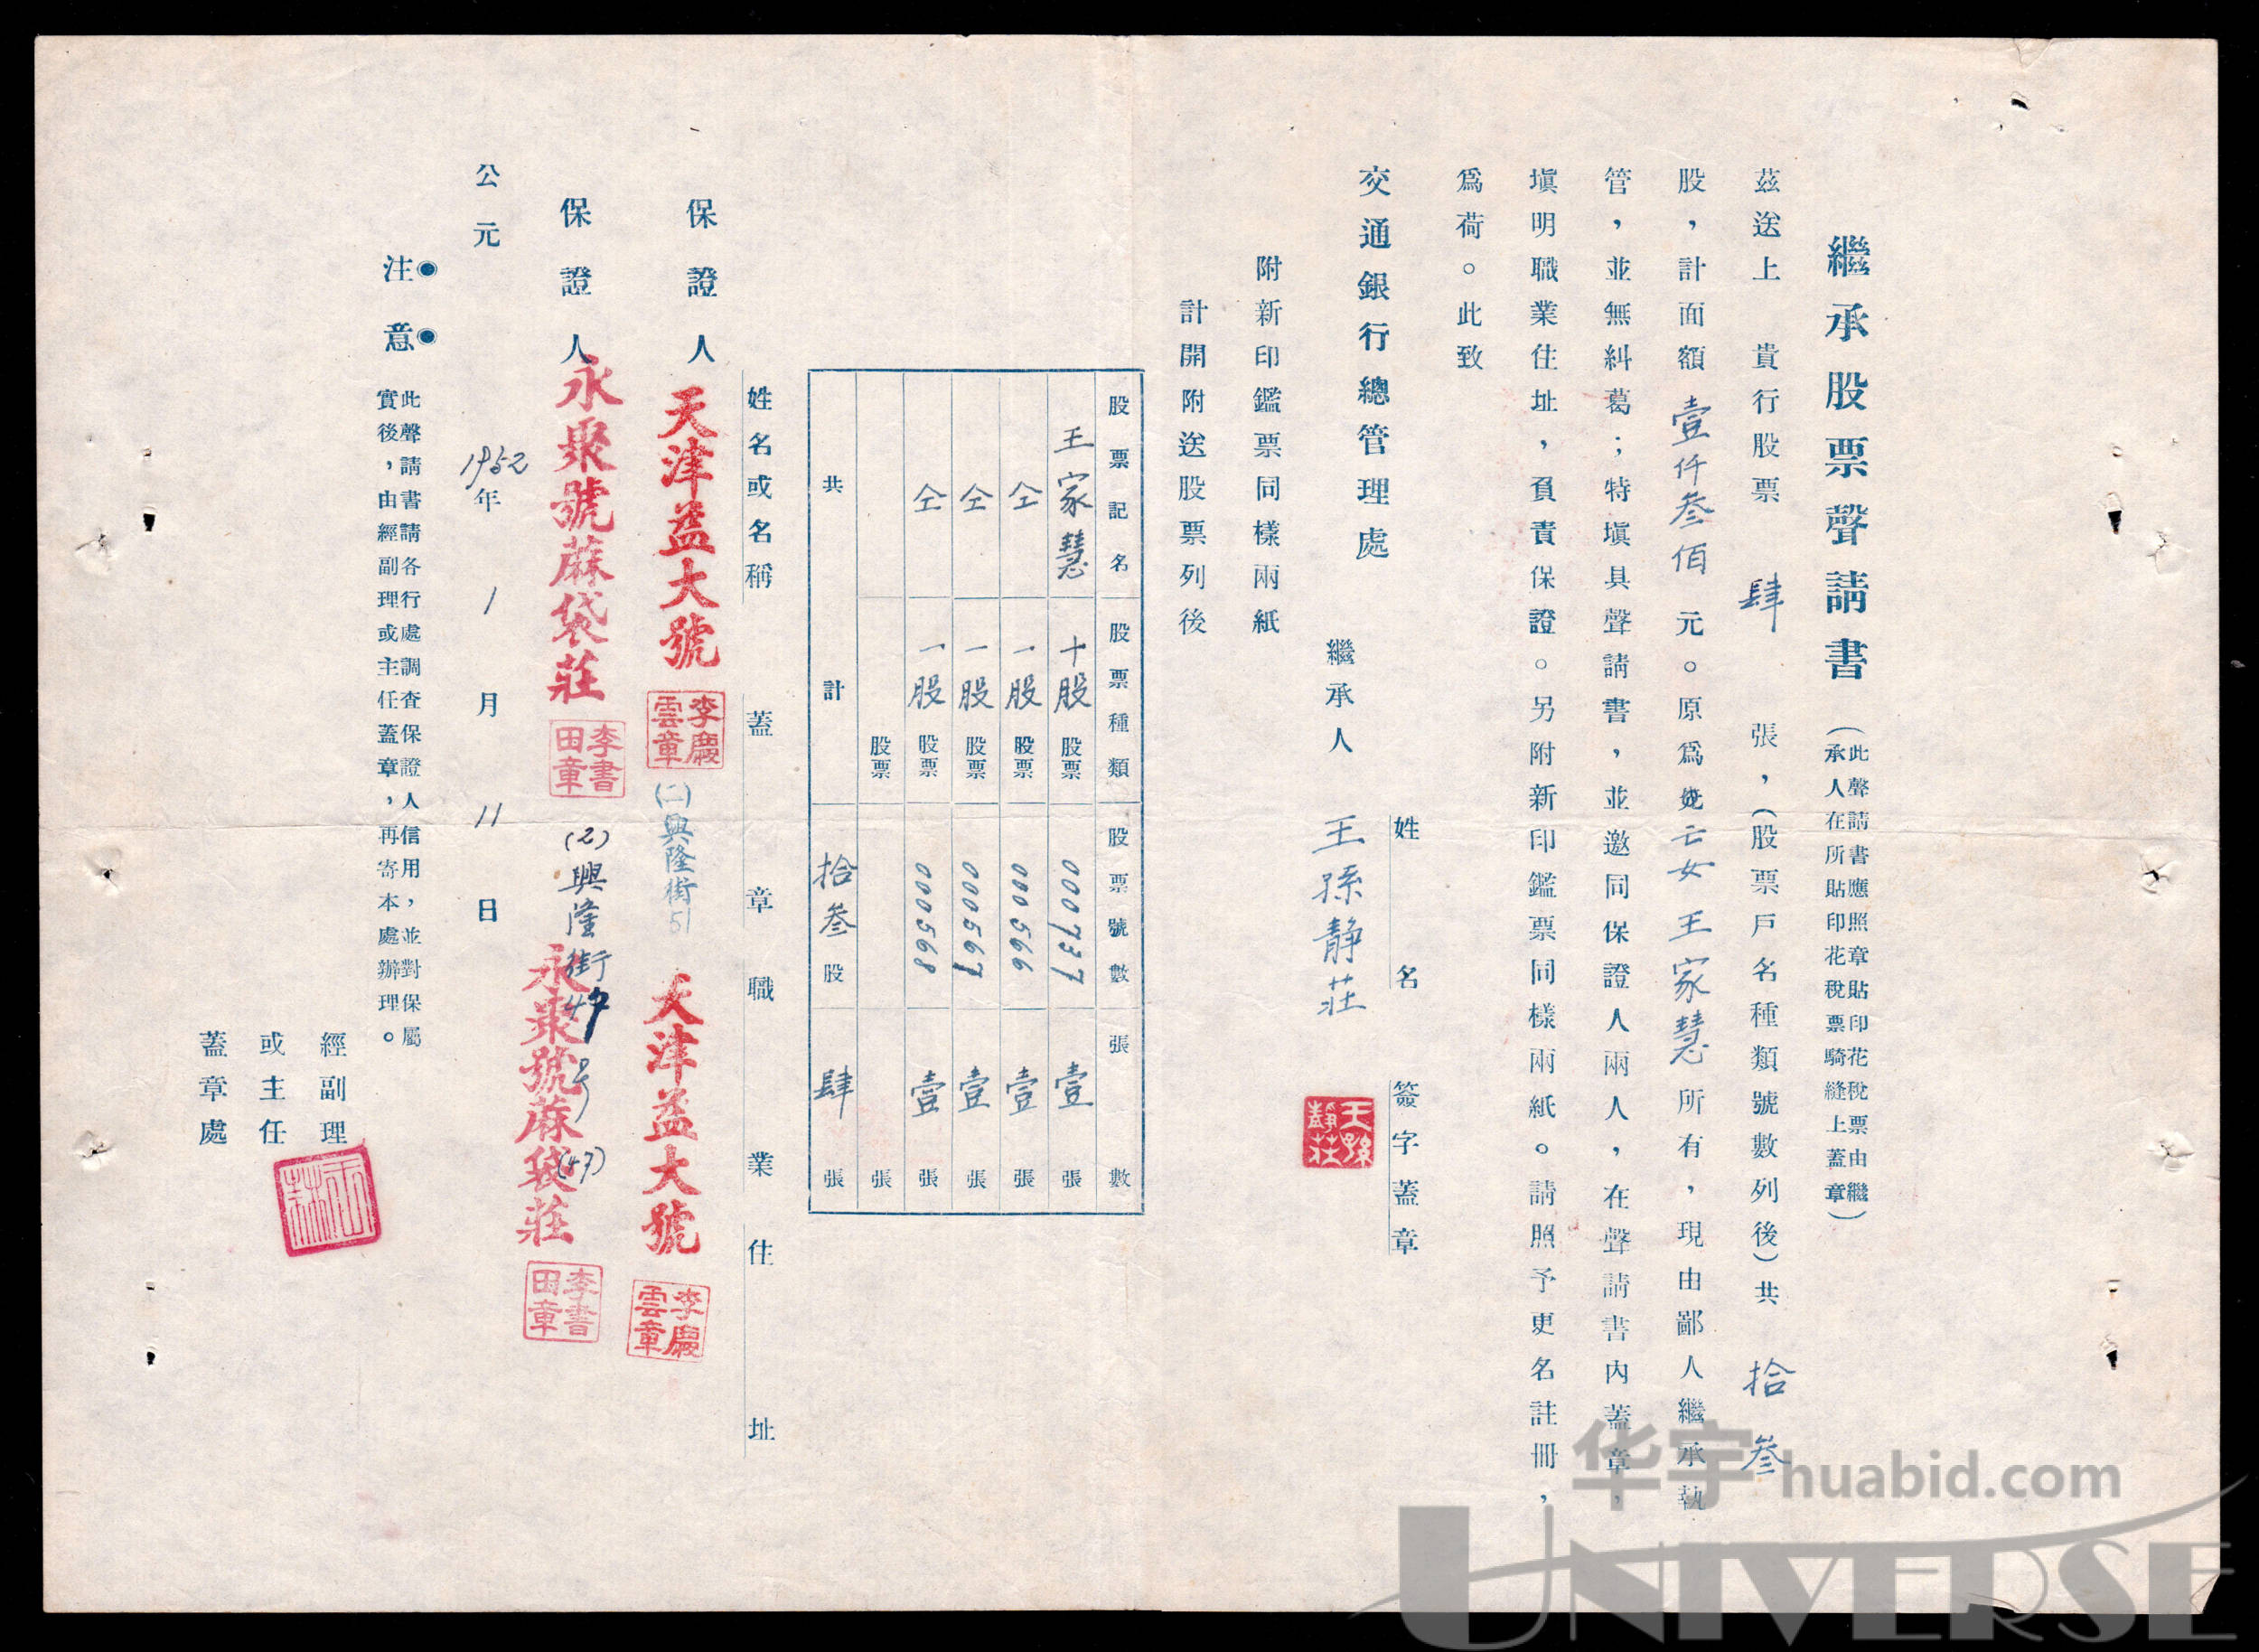 繼承股票聲請書
（此聲請書應照章貼印花稅票由繼
承人在所貼印花稅票騎縫上蓋章）
茲送上　貴行股票　肆　張，（股票戶名種類號數列後）共　拾叁
股，計面額壹仟叁佰元。原爲　亡女王家慧所有，現由鄙人繼承執
管，並無糾葛；特塡具聲請書，並邀同保證人兩人，在聲請書內蓋章，
塡明職業住址，負責保證。另附新印鑑票同樣兩紙。請照予更名註冊，
爲荷。此致
交通銀行總管理處
姓　名　簽字蓋章
繼承人　王孫靜莊
王孫靜莊
附新印鑑票同樣兩紙
計開附送股票列後
股票記名　股票種類　股票號數　張數
王家慧　十股股票　000737　壹張
仝　一股股票　000566　壹張
仝　一股股票　000567　壹張
仝　一股股票　000568　壹張
股票　張
共計　拾叁股　肆張
姓名或名稱　蓋章　職業　住址
保證人　天津益大號　李慶雲章　(二)興隆街51　天津益大號　李慶雲章
保證人　永聚號蔴袋莊　李書田章　(2)興隆街47号(47)　永聚號蔴袋莊　李書田章
公元　1952年　1月　11日
注意
此聲請書請各行處調查保證人信用，並對保屬
實後，由經副理或主任蓋章，再寄本處辦理。
經副理
或主任
蓋章處
华宇huabid.com
UNIVERSE